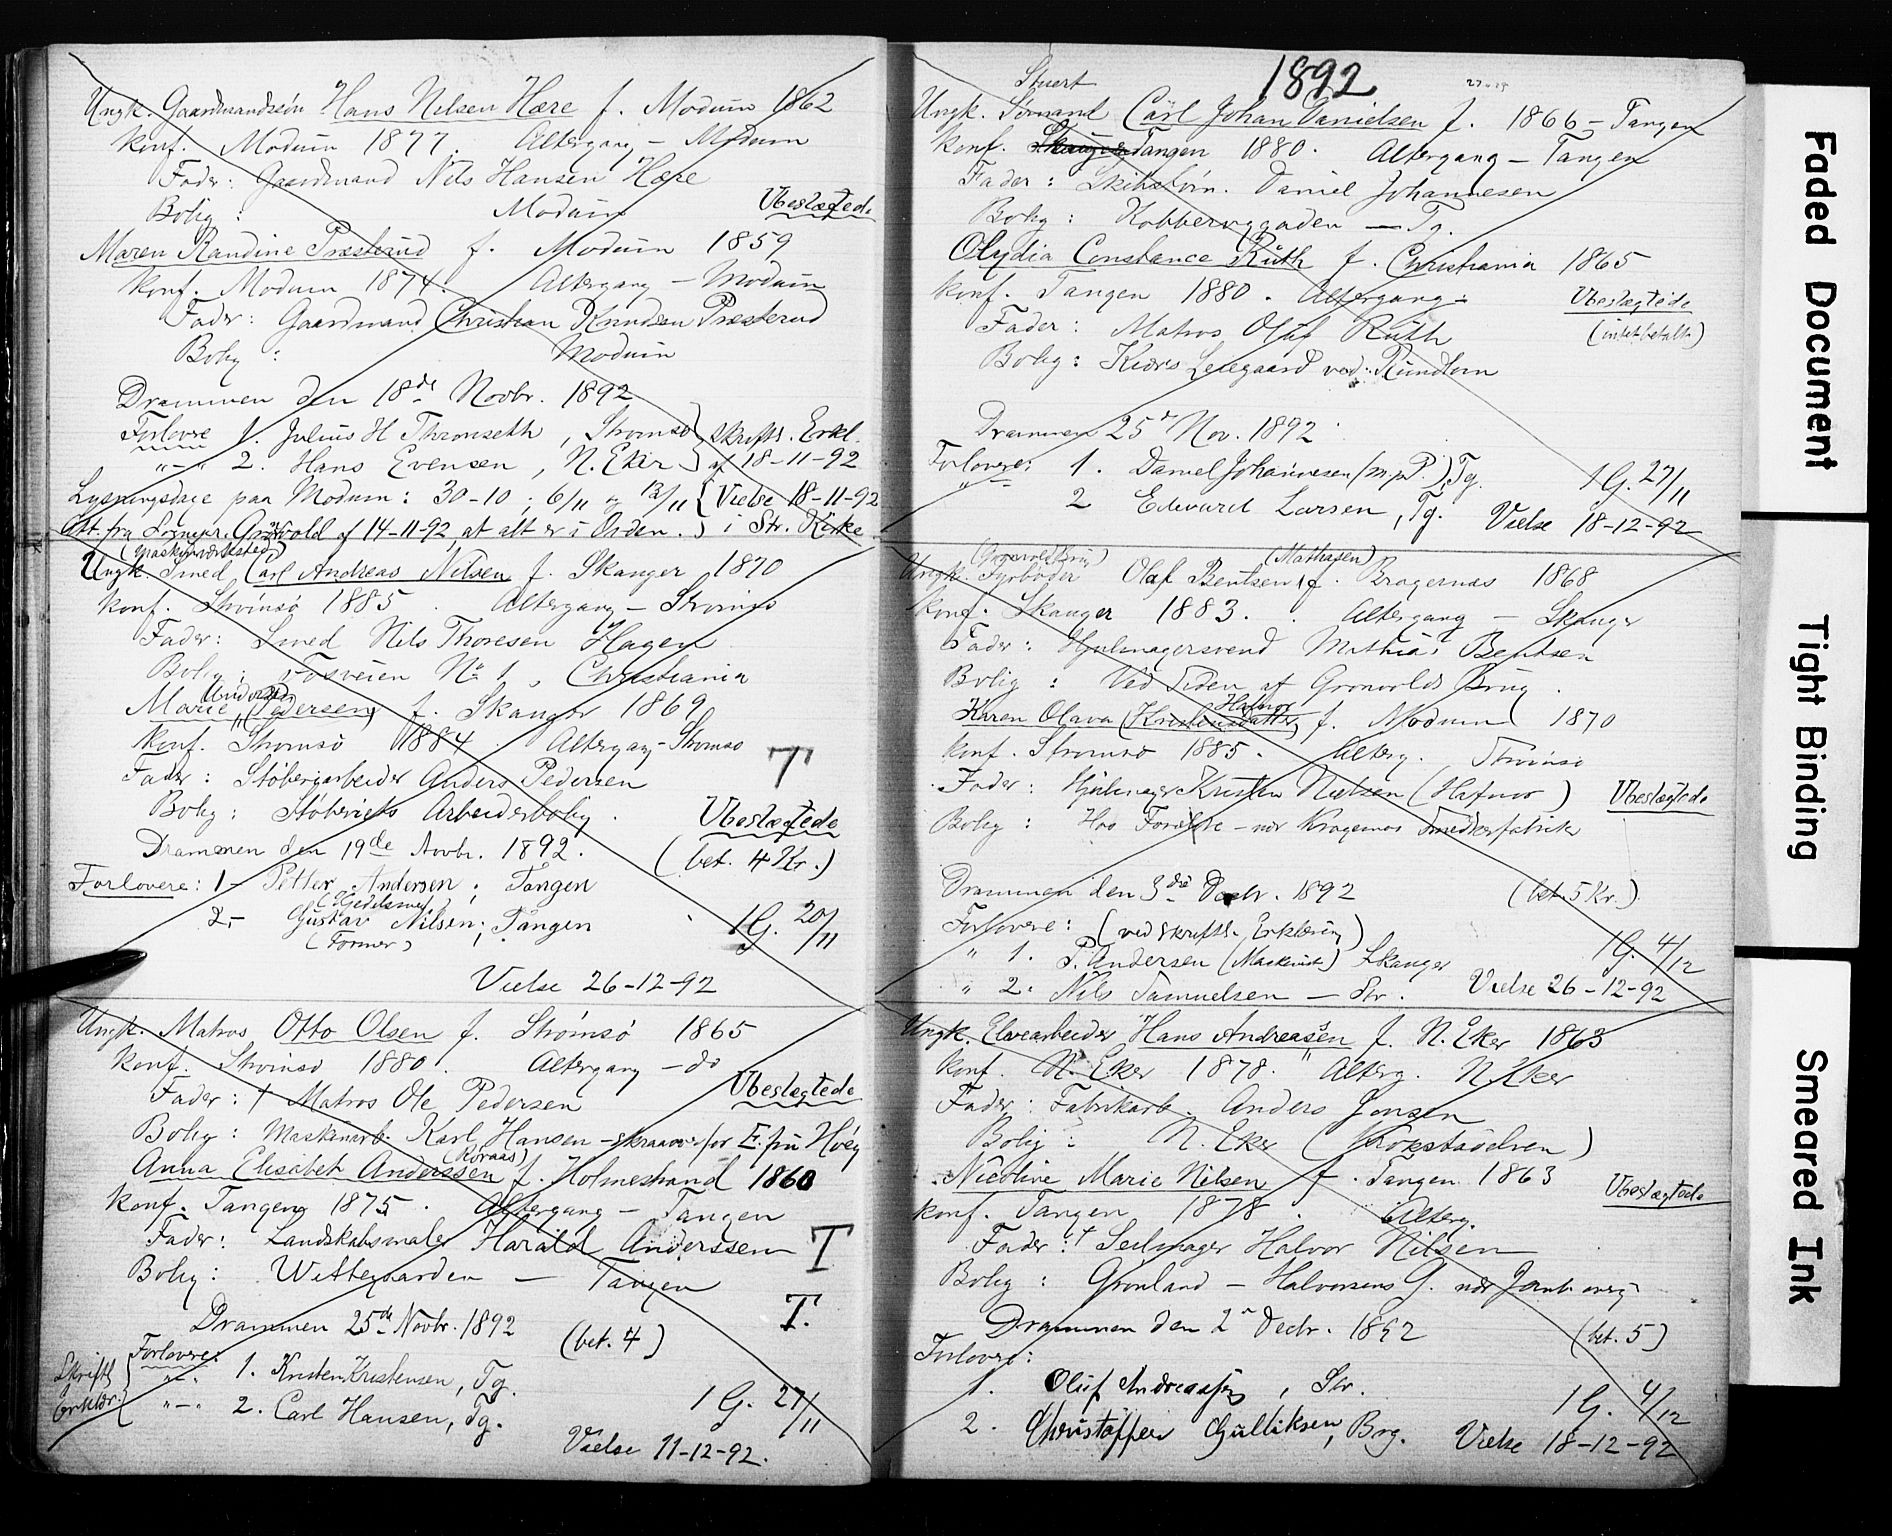 Ungk. Gaardmandssøn Hans Nilsen Hære f. Modum 1862
konf. Modum 1877. Altergang – Modum
Fader: Gaardmand Nils Hansen Hære
Bolig: Modum Ubeslægtede
Maren Randine Præsterud f. Modum 1859
konf. Modum 1874. Altergang – Modum
Fader: Gaardmand Christian Knudsen Præsterud
Bolig: Modum
Drammen den 18de Novbr. 1892
Forlovere 1. Julius H Thronseth, Strømsø } skriftl. Erkl.
"–" 2. Hans Evensen, N. Eker } af 18-11-92
Lysningsdage paa Modum: 30-10; 6/11 og 13/11 { Vielse 18-11-92
Att. fra Sognepr. Grønvold af 14-11-92 at alt er i Orden. } i Str. Kirke
Ungk. Smed Carl Andreas Nilsen f. Skanger 1870
konf. Strømsø 1885. Altergang – Strømsø
Fader: Smed Nils Thoresen Hagen
Bolig: Fosveien No 1, Christiania
Marie (Pedersen) f. Skanger 1869
konf. Strømsø 1884. Altergang – Strømsø
T
Fader: Støberiarbeider Anders Pedersen
Bolig: Støberiets Arbeiderbolig. Ubeslægtede
Drammen den 19de Novbr. 1892. (bet. 4 Kr.)
Forlovere: 1– Petter Andersen, Tangen
2– Gustav Nilsen, Tangen 1 G. 20/11
(Former)
Vielse 26-12-92
Ungk. Matros Otto Olsen f. Strømsø 1865
konf. Strømsø 1880. Altergang – do
Fader: † Matros Ole Pedersen Ubeslægtede
Bolig: Maskinarb. Karl Hansen – skraaover for E. fru Høeg
(Roraas)
Anna Elisabeth Anderssen f. Holmestrand 1860
konf. Tangen 1875. Altergang – Tangen
Fader: Landskabsmaler Harald Anderssen T
Bolig: Wittegaarden – Tangen
T.
Drammen 25de Novbr. 1892 (bet. 4)
Skriftl Erklær: { Forlovere:
"–" 1. Kristen Kristensen, Tg.
"–" 2. Carl Hansen, Tg. 1 G. 27/11
Vielse 11-12-92.
1892
Stuert
Ungk. Sømand Carl Johan Danielsen f. 1866 – Tangen
konf. Tangen 1880. Altergang – Tangen
Fader: Skibstøm. Daniel Johannesen
Bolig: Kobberviggaden – Tg.
Olydia Constance Ruth f. Christiania 1865
konf. Tangen 1880. Altergang: Ubeslægtede
Fader: Matros Olaf Ruth (intet betalt)
Bolig: Kiærs Leiegaard ved Rundtom
Drammen 25de Nov. 1892
Forlovere: 1. Daniel Johannesen (m.p.P.) Tg. 1 G. 27/11
2 Edvard Larsen, Tg. Vielse 18-12-92
(Grønvold Brug) (Mathasen)
Ungk. Fyrbøder Olaf Bentsen, f. Bragernæs 1868
konf. Skanger 1883. Altergang – Skanger
Fader: Hjulmagersvend Mathias Bentsen
Bolig: Ved Siden af Grønvolds Brug.
Hafnor
Karen Olava (Kristensdatter) f. Modum 1870
konf. Strømsø 1885. Alterg. Strømsø
Fader: Hjulmager Kristen Nielsen (Hafnor) Ubeslægtede
Bolig: Hos Forældre – nær Kragernos Smedkerfabrik
Drammen den 3die Decbr. 1892 (bet. 5 Kr.)
Forlovere: (ved skriftl. Erklæring)
" 1. P. Andersen (Maskinist) Skanger 1 G. 4/12
" 2. Nils Samuelsen – Str. Vielse 26-12-92
Ungk. Elvearbeider Hans Andreassen f. N. Eker 1863
konf. N. Eker 1878. Alterg. N. Eker
Fader: Fabrikarb. Anders Jonsen
Bolig: N. Eker (Krokstadelven)
Nicoline Marie Nilsen f. Tangen 1863 Ubeslægtede
konf. Tangen 1878. Alterg.
Fader: † Seilmager Halvor Nilsen
Bolig: Grønland – Halvorsens G. nær Jernb. overg.
Drammen den 2n Decbr. 1892 (bet. 5)
Forlovere:
1. Oluf Andreassen, Str. 1 G. 4/12
2. Christoffer Gulliksen, Brg. Vielse 18-12-92
Faded Document
Tight Binding
Smeared Ink